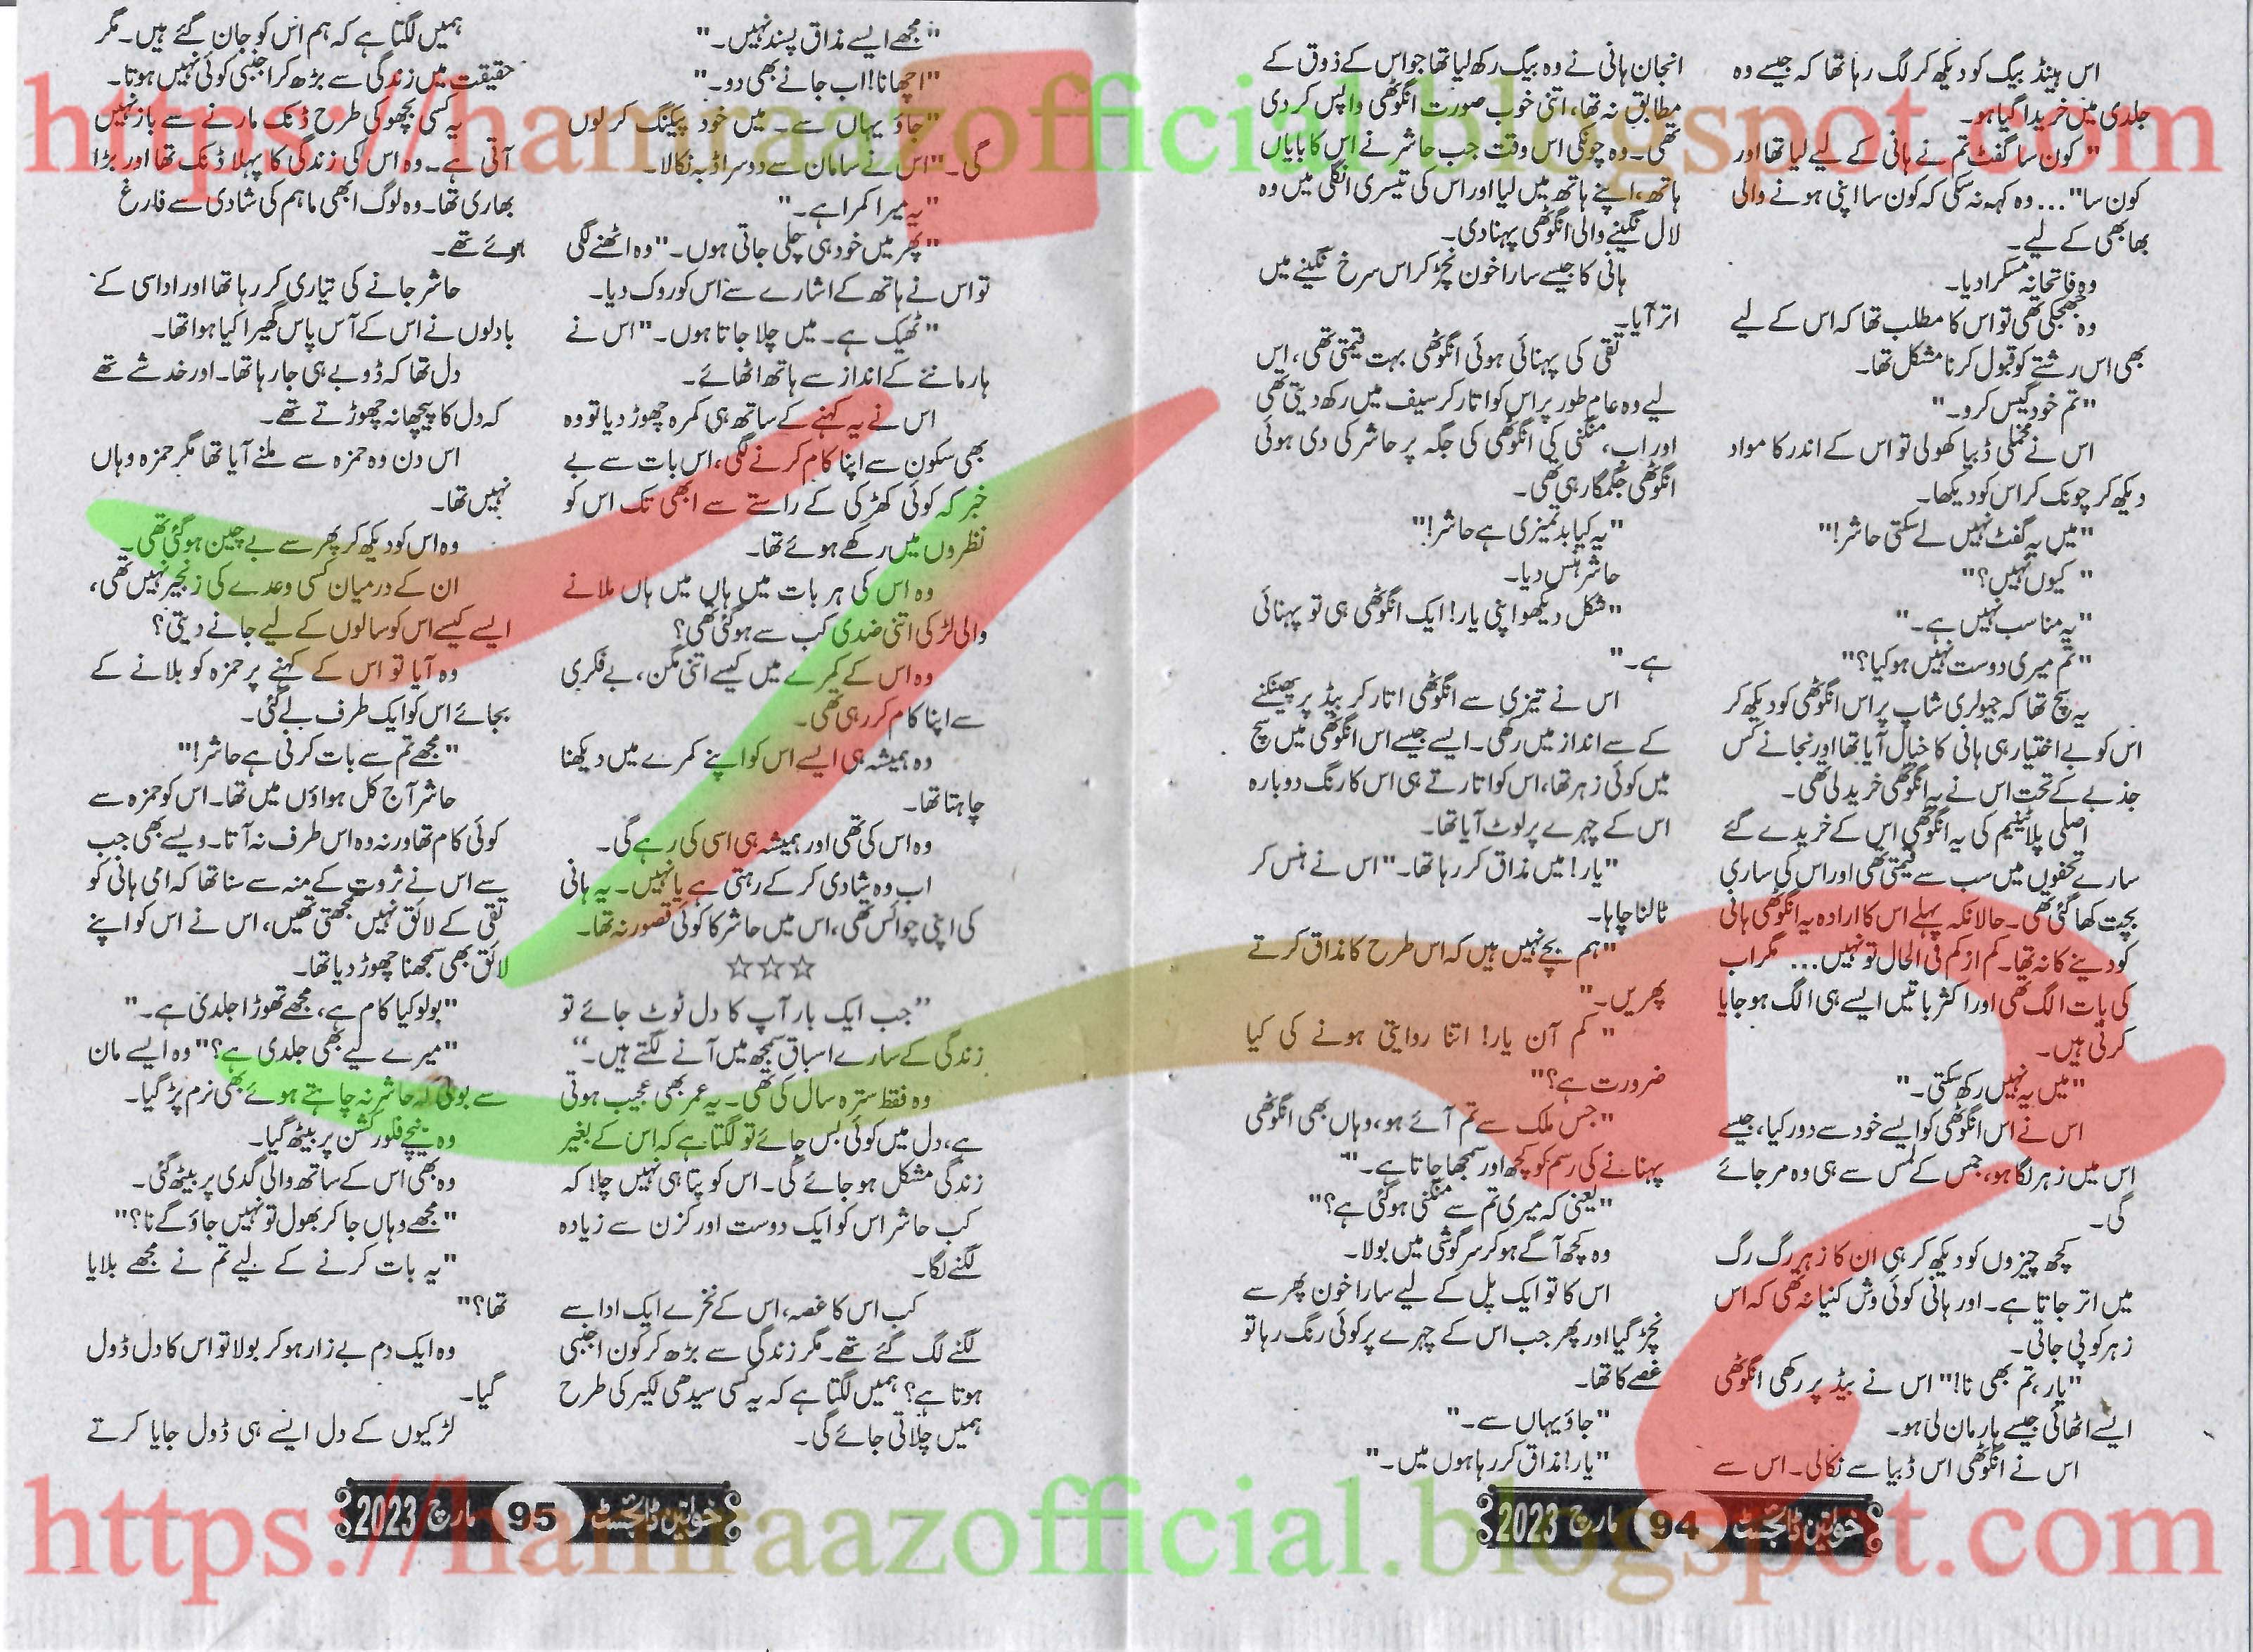 اس ہینڈ بیگ کو دیکھ کر لگ رہا تھا کہ جیسے وہ
جلدی میں خریدا گیا ہو۔
"کون سا گفٹ تم نے ہانی کے لیے لیا تھا اور
کون سا"... وہ کہہ نہ سکی کہ کون سا اپنی ہونے والی
بھابھی کے لیے۔
وہ فاتحانہ مسکرا دیا۔
وہ جھجکی تھی تو اس کا مطلب تھا کہ اس کے لیے
بھی اس رشتے کو قبول کرنا مشکل تھا۔
"تم خود گیس کرو۔"
اس نے مخملی ڈبیا کھولی تو اس کے اندر کا مواد
دیکھ کر چونک کر اس کو دیکھا۔
"میں یہ گفٹ نہیں لے سکتی حاشر!"
"کیوں نہیں؟"
"یہ مناسب نہیں ہے۔"
"تم میری دوست نہیں ہو کیا؟"
یہ سچ تھا کہ جیولری شاپ پر اس انگوٹھی کو دیکھ کر
اس کو بے اختیار ہی ہانی کا خیال آیا تھا اور نجانے کس
جذبے کے تحت اس نے یہ انگوٹھی خرید لی تھی۔
اصلی پلاٹینیم کی یہ انگوٹھی اس کے خریدے گئے
سارے تحفوں میں سب سے قیمتی تھی اور اس کی ساری
بچت کھا گئی تھی۔ حالانکہ پہلے اس کا ارادہ یہ انگوٹھی ہانی
کو دینے کا نہ تھا۔ کم از کم فی الحال تو نہیں... مگر اب
کی بات الگ تھی اور اکثر باتیں ایسے ہی الگ ہو جایا
کرتی ہیں۔
"میں یہ نہیں رکھ سکتی۔"
اس نے اس انگوٹھی کو ایسے خود سے دور کیا، جیسے
اس میں زہر لگا ہو، جس کے لمس سے ہی وہ مر جائے
گی۔
کچھ چیزوں کو دیکھ کر ہی ان کا زہر رگ رگ
میں اتر جاتا ہے۔ اور ہانی کوئی وش کنیا نہ تھی کہ اس
زہر کو پی جاتی۔
"یار، تم بھی نا!" اس نے بیڈ پر رکھی انگوٹھی
ایسے اٹھائی جیسے ہار مان لی ہو۔
اس نے انگوٹھی اس ڈبیا سے نکالی۔ اس سے
انجان ہانی نے وہ بیگ رکھ لیا تھا جو اس کے ذوق کے
مطابق نہ تھا، اتنی خوب صورت انگوٹھی واپس کر دی
تھی۔ وہ چونکی اس وقت جب حاشر نے اس کا بایاں
ہاتھ، اپنے ہاتھ میں لیا اور اس کی تیسری انگلی میں وہ
لال نگینے والی انگوٹھی پہنا دی۔
ہانی کا جیسے سارا خون نچڑ کر اس سرخ نگینے میں
اتر آیا۔
تقی کی پہنائی ہوئی انگوٹھی بہت قیمتی تھی، اس
لیے وہ عام طور پر اس کو اتار کر سیف میں رکھ دیتی تھی
اور اب، منگنی کی انگوٹھی کی جگہ پر حاشر کی دی ہوئی
انگوٹھی جگمگا رہی تھی۔
"یہ کیا بدتمیزی ہے حاشر!"
حاشر ہنس دیا۔
"شکل دیکھو اپنی یار! ایک انگوٹھی ہی تو پہنائی
ہے۔"
اس نے تیزی سے انگوٹھی اتار کر بیڈ پر پھینکنے
کے سے انداز میں رکھی۔ ایسے جیسے اس انگوٹھی میں سچ
میں کوئی زہر تھا، اس کو اتارتے ہی اس کا رنگ دوبارہ
اس کے چہرے پر لوٹ آیا تھا۔
"یار! میں مذاق کر رہا تھا۔" اس نے ہنس کر
ٹالنا چاہا۔
"ہم بچے نہیں ہیں کہ اس طرح کا مذاق کرتے
پھریں۔"
"کم آن یار! اتنا روایتی ہونے کی کیا
ضرورت ہے؟"
"جس ملک سے تم آئے ہو، وہاں بھی انگوٹھی
پہنانے کی رسم کو کچھ اور سمجھا جاتا ہے۔"
"یعنی کہ میری تم سے منگنی ہو گئی ہے؟"
وہ کچھ آگے ہو کر سرگوشی میں بولا۔
اس کا تو ایک پل کے لیے سارا خون پھر سے
نچڑ گیا اور پھر جب اس کے چہرے پر کوئی رنگ رہا تو
غصے کا تھا۔
"جاؤ یہاں سے۔"
"یار! مذاق کر رہا ہوں میں۔"
خواتین ڈائجسٹ 94 مارچ 2023
"مجھے ایسے مذاق پسند نہیں۔"
"اچھا نا! اب جانے بھی دو۔"
"جاؤ یہاں سے۔ میں خود پیکنگ کر لوں
گی۔" اس نے سامان سے دوسرا ڈبہ نکالا۔
"یہ میرا کمرا ہے۔"
"پھر میں خود ہی چلی جاتی ہوں۔" وہ اٹھنے لگی
تو اس نے ہاتھ کے اشارے سے اس کو روک دیا۔
"ٹھیک ہے۔ میں چلا جاتا ہوں۔" اس نے
ہار ماننے کے انداز سے ہاتھ اٹھائے۔
اس نے یہ کہنے کے ساتھ ہی کمرہ چھوڑ دیا تو وہ
بھی سکون سے اپنا کام کرنے لگی، اس بات سے بے
خبر کہ کوئی کھڑکی کے راستے سے ابھی تک اس کو
نظروں میں رکھے ہوئے تھا۔
وہ اس کی ہر بات میں ہاں میں ہاں ملانے
والی لڑکی اتنی ضدی کب سے ہو گئی تھی؟
وہ اس کے کمرے میں کیسے اتنی مگن، بے فکری
سے اپنا کام کر رہی تھی۔
وہ ہمیشہ ہی ایسے اس کو اپنے کمرے میں دیکھنا
چاہتا تھا۔
وہ اس کی تھی اور ہمیشہ ہی اسی کی رہے گی۔
اب وہ شادی کر کے رہتی ہے یا نہیں۔ یہ ہانی
کی اپنی چوائس تھی، اس میں حاشر کا کوئی قصور نہ تھا۔
☆☆☆
"جب ایک بار آپ کا دل ٹوٹ جائے تو
زندگی کے سارے اسباق سمجھ میں آنے لگتے ہیں۔"
وہ فقط سترہ سال کی تھی۔ یہ عمر بھی عجیب ہوتی
ہے، دل میں کوئی بس جائے تو لگتا ہے کہ اس کے بغیر
زندگی مشکل ہو جائے گی۔ اس کو پتا ہی نہیں چلا کہ
کب حاشر اس کو ایک دوست اور کزن سے زیادہ
لگنے لگا۔
کب اس کا غصہ، اس کے نخرے ایک ادا سے
لگنے لگ گئے تھے۔ مگر زندگی سے بڑھ کر کون اجنبی
ہوتا ہے؟ ہمیں لگتا ہے کہ یہ کسی سیدھی لکیر کی طرح
ہمیں چلاتی جائے گی۔
ہمیں لگتا ہے کہ ہم اس کو جان گئے ہیں۔ مگر
حقیقت میں زندگی سے بڑھ کر اجنبی کوئی نہیں ہوتا۔
یہ کسی بچھو کی طرح ڈنک مارنے سے باز نہیں
آتی ہے۔ وہ اس کی زندگی کا پہلا ڈنک تھا اور بڑا
بھاری تھا۔ وہ لوگ ابھی ماہم کی شادی سے فارغ
ہوئے تھے۔
حاشر جانے کی تیاری کر رہا تھا اور اداسی کے
بادلوں نے اس کے آس پاس گھیرا کیا ہوا تھا۔
دل تھا کہ ڈوبے ہی جا رہا تھا۔ اور خدشے تھے
کہ دل کا پیچھا نہ چھوڑتے تھے۔
اس دن وہ حمزہ سے ملنے آیا تھا مگر حمزہ وہاں
نہیں تھا۔
وہ اس کو دیکھ کر پھر سے بے چین ہو گئی تھی۔
ان کے درمیان کسی وعدے کی زنجیر نہیں تھی،
ایسے کیسے اس کو سالوں کے لیے جانے دیتی؟
وہ آیا تو اس کے کہنے پر حمزہ کو بلانے کے
بجائے اس کو ایک طرف لے گئی۔
"مجھے تم سے بات کرنی ہے حاشر!"
حاشر آج کل ہواؤں میں تھا۔ اس کو حمزہ سے
کوئی کام تھا ورنہ وہ اس طرف نہ آتا۔ ویسے بھی جب
سے اس نے ثروت کے منہ سے سنا تھا کہ امی ہانی کو
تقی کے لائق نہیں سمجھتی تھیں، اس نے اس کو اپنے
لائق بھی سمجھنا چھوڑ دیا تھا۔
"بولو کیا کام ہے، مجھے تھوڑا جلدی ہے۔"
"میرے لیے بھی جلدی ہے؟" وہ ایسے مان
سے بولی کہ حاشر نہ چاہتے ہوئے بھی نرم پڑ گیا۔
وہ نیچے فلور کشن پر بیٹھ گیا۔
وہ بھی اس کے ساتھ والی گدی پر بیٹھ گئی۔
"مجھے وہاں جا کر بھول تو نہیں جاؤ گے نا؟"
"یہ بات کرنے کے لیے تم نے مجھے بلایا
تھا؟"
وہ ایک دم بے زار ہو کر بولا تو اس کا دل ڈول
گیا۔
لڑکیوں کے دل ایسے ہی ڈول جایا کرتے
خواتین ڈائجسٹ 95 مارچ 2023
https://hamraazofficial.blogspot.com
https://hamraazofficial.blogspot.com